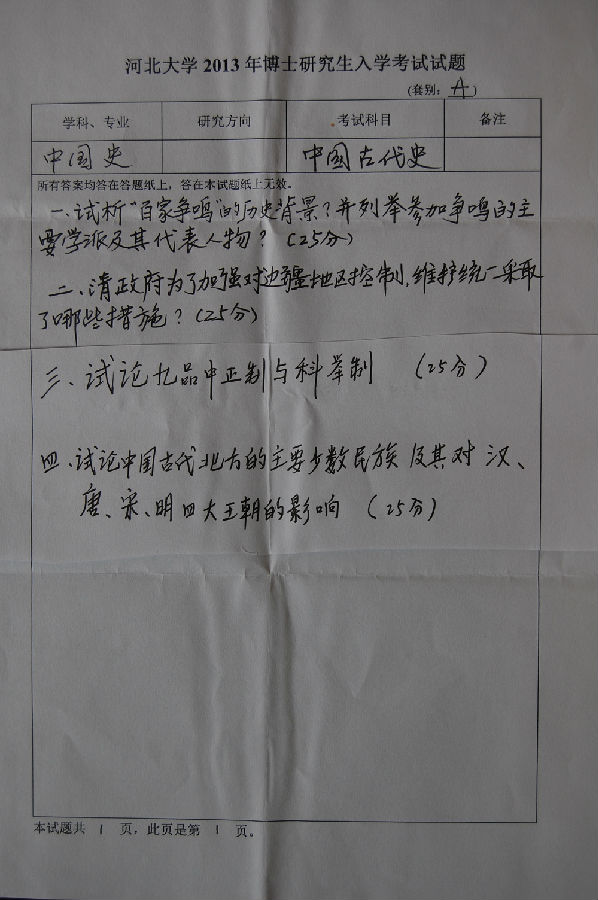 河北大学 2013 年博士研究生入学考试试题
(套别: A )
学科、专业 研究方向 考试科目 备注
中国史 中国古代史
所有答案均答在答题纸上，答在本试题纸上无效。
一、试析"百家争鸣"的历史背景？并列举参加争鸣的主
要学派及其代表人物？（25分）
二、清政府为了加强对边疆地区控制，维护统一采取
了哪些措施？（25分）
三、试论九品中正制与科举制 （25分）
四、试论中国古代北方的主要少数民族及其对汉、
唐、宋、明四大王朝的影响 （25分）
本试题共 1 页，此页是第 1 页。